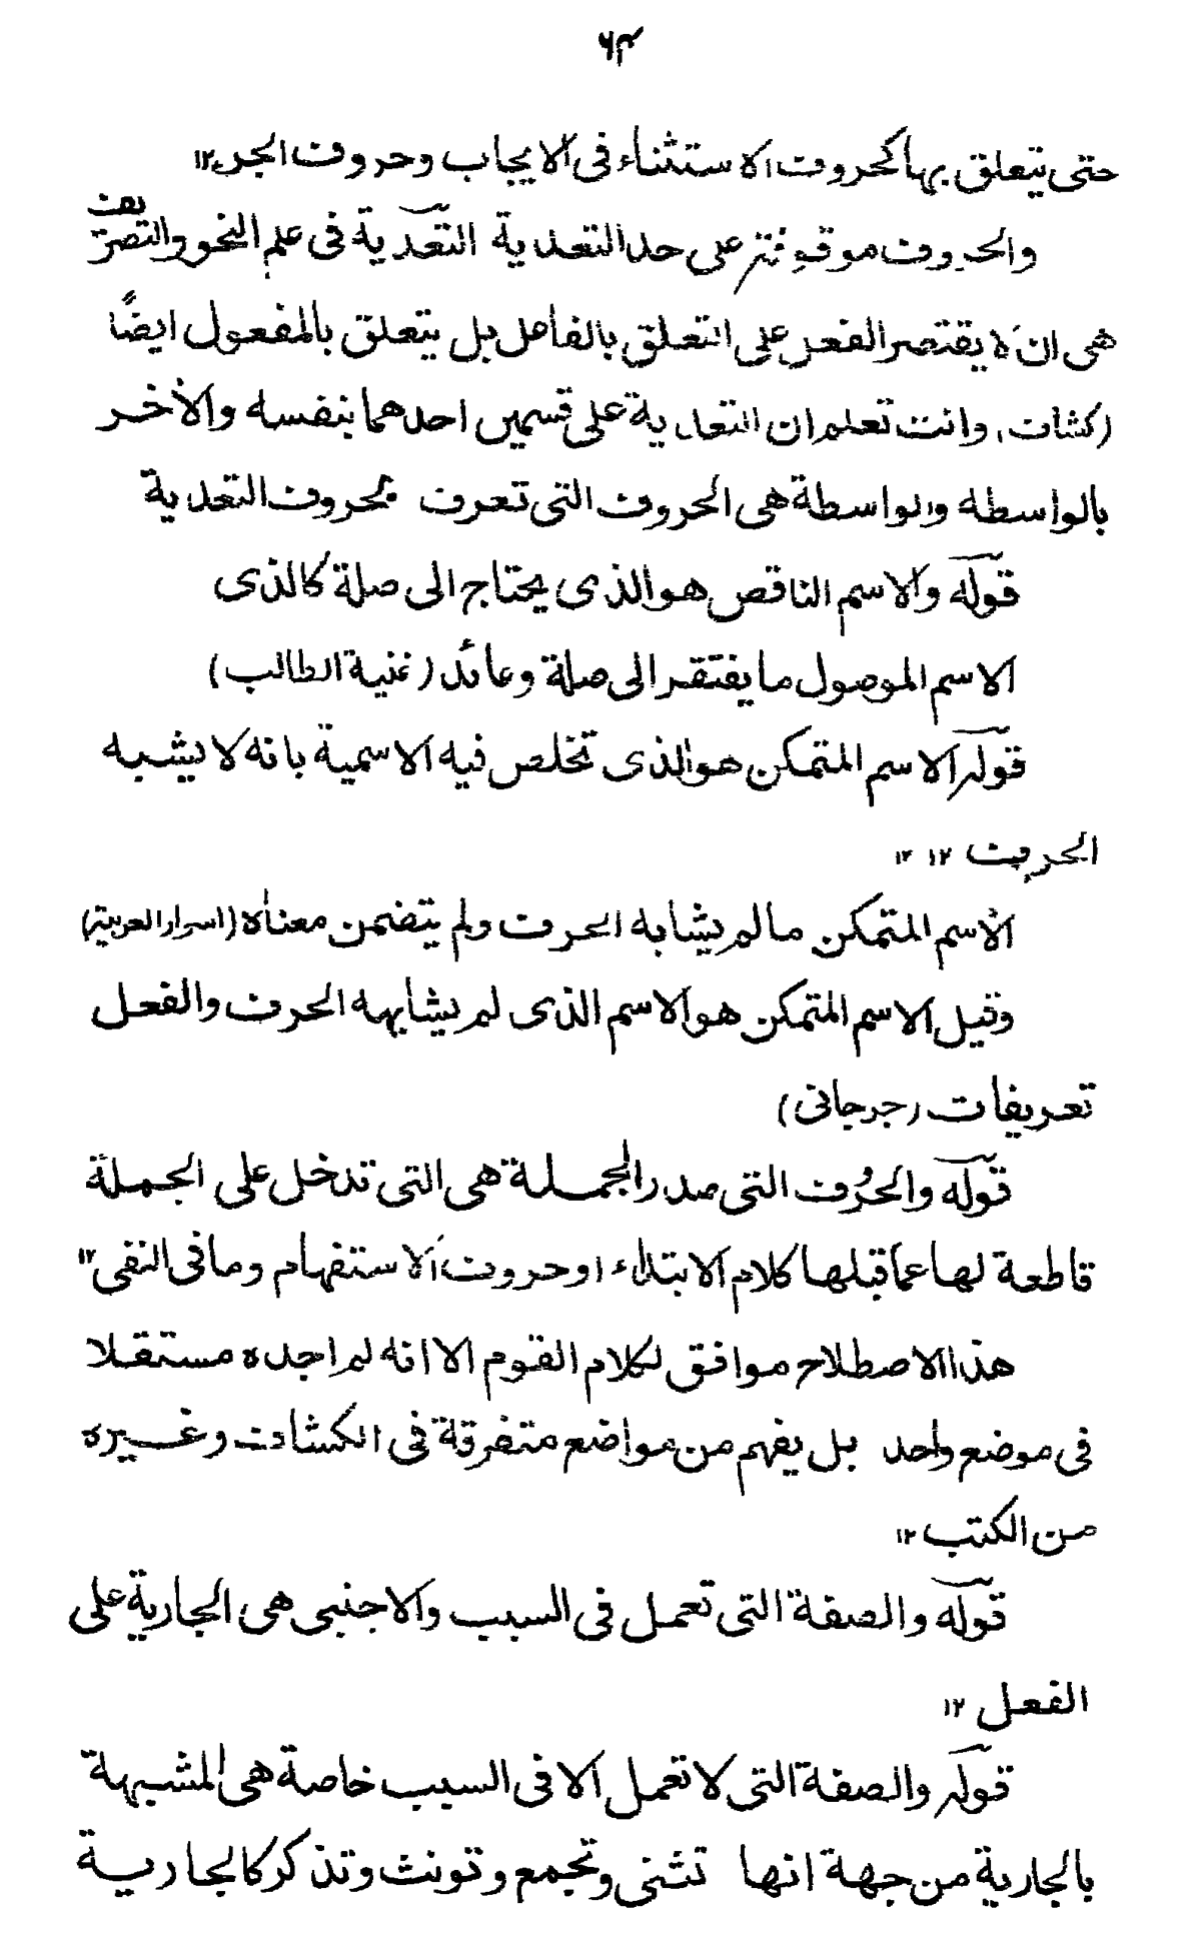 حتى يتعلق بها كحروف الاستثناء فى الايجاب وحروف الجر ۱۲
والحروف على حد التعدية التعدية فى علم النحو والتصريف
هى ان لا يقتصر الفعل على التعلق بالفاعل بل يتعلق بالمفعول ايضًا
(كشاف) وانت تعلم ان التعدية على قسمين احدهما بنفسه والأخر
بالواسطه والواسطة هى الحروف التى تعرف بحروف التعدية
قوله والاسم الناقص هو الذى يحتاج الى صلة كالذى
الاسم الموصول ما يفتقر الى صلة وعائد (غنية الطالب)
قوله الاسم المتمكن هو الذى تخلص فيه الاسمية بانه لا يشبه
الحرف ۱۲ ۱۲
الأسم المتمكن مالم يشابه الحرف ولم يتضمن معناه (اسرار العربية)
وقيل الاسم المتمكن هو الاسم الذى لم يشابهه الحرف والفعل
تعريفات (جرجانى)
قوله والحُرُف التى صدر الجملة هى التى تدخل على الجملة
قاطعة لها عما قبلها كلام الابتداء او حروف الاستفهام وما فى النفى ۱۲
هذا الاصطلاح موافق لكلام القوم الا انه لم اجده مستقلا
فى موضع واحد بل يفهم من مواضع متفرقة فى الكشاف وغيره
من الكتب ۱۲
قوله والصفة التى تعمل فى السبب والاجنبى هى الجارية على
الفعل ۱۲
قوله والصفة التى لا تعمل الا فى السبب خاصة هى المشبهة
بالجارية من جهة انها تثنى وتجمع وتونث وتذكر كالجارية